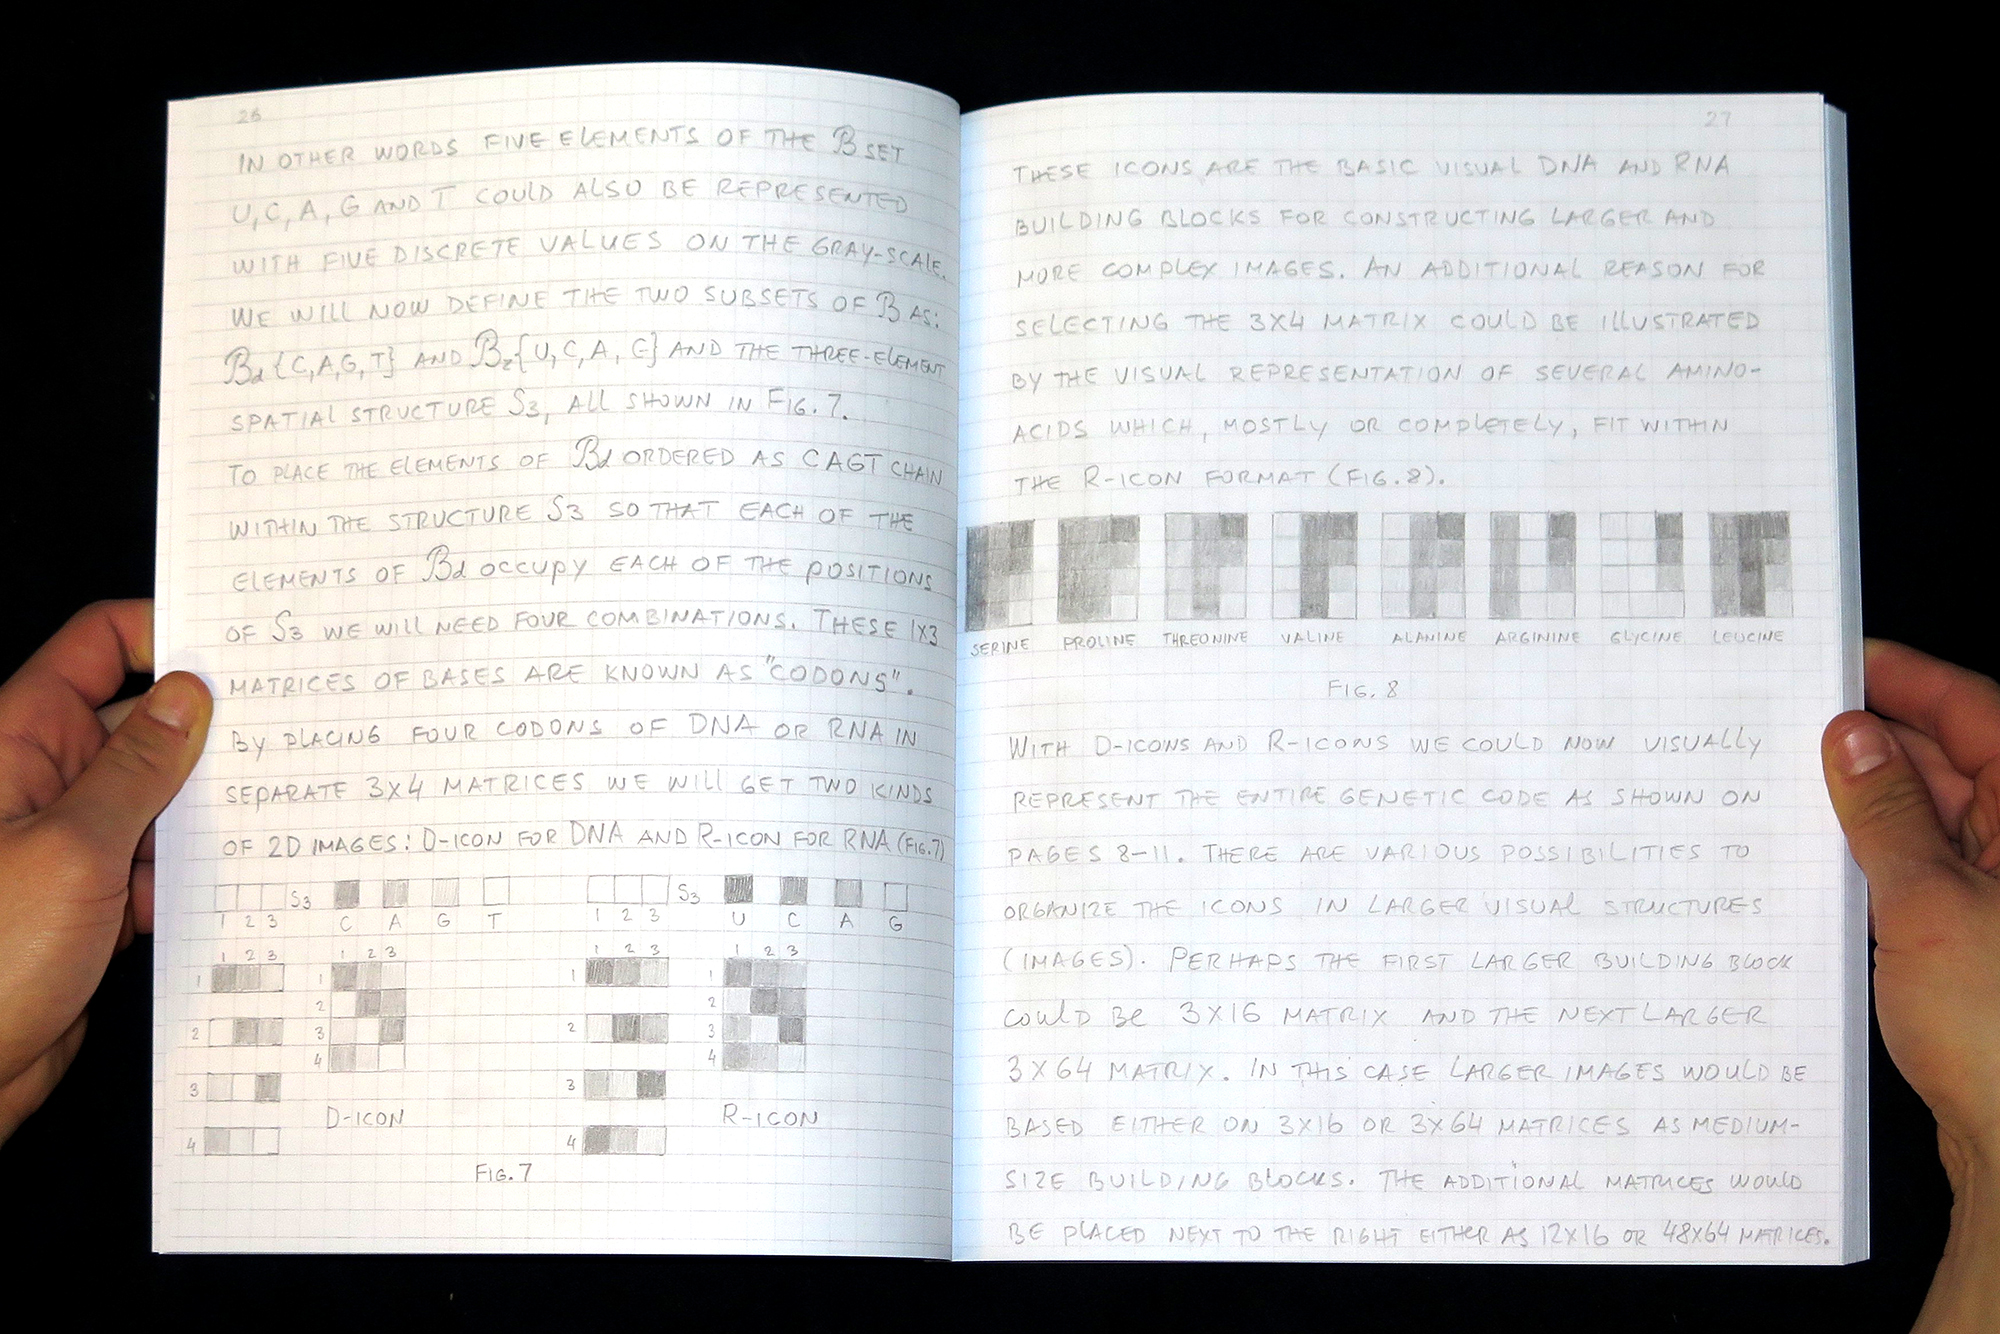 26
IN OTHER WORDS FIVE ELEMENTS OF THE B SET
U, C, A, G AND T COULD ALSO BE REPRESENTED
WITH FIVE DISCRETE VALUES ON THE GRAY-SCALE.
WE WILL NOW DEFINE THE TWO SUBSETS OF B AS:
Bd {C,A,G,T} AND Br {U, C, A, G} AND THE THREE-ELEMENT
SPATIAL STRUCTURE S3, ALL SHOWN IN FIG. 7.
TO PLACE THE ELEMENTS OF Bd ORDERED AS CAGT CHAIN
WITHIN THE STRUCTURE S3 SO THAT EACH OF THE
ELEMENTS OF Bd OCCUPY EACH OF THE POSITIONS
OF S3 WE WILL NEED FOUR COMBINATIONS. THESE 1X3
MATRICES OF BASES ARE KNOWN AS "CODONS".
BY PLACING FOUR CODONS OF DNA OR RNA IN
SEPARATE 3X4 MATRICES WE WILL GET TWO KINDS
OF 2D IMAGES: D-ICON FOR DNA AND R-ICON FOR RNA (FIG.7)
S3 S3
1 2 3 C A G T 1 2 3 U C A G
1 2 3 1 2 3 1 2 3 1 2 3
1 1 1 1
2 2 2 2
3 3 3 3
4 4
D-ICON R-ICON
4 4
FIG. 7
27
THESE ICONS ARE THE BASIC VISUAL DNA AND RNA
BUILDING BLOCKS FOR CONSTRUCTING LARGER AND
MORE COMPLEX IMAGES. AN ADDITIONAL REASON FOR
SELECTING THE 3X4 MATRIX COULD BE ILLUSTRATED
BY THE VISUAL REPRESENTATION OF SEVERAL AMINO-
ACIDS WHICH, MOSTLY OR COMPLETELY, FIT WITHIN
THE R-ICON FORMAT (FIG.8).
SERINE PROLINE THREONINE VALINE ALANINE ARGININE GLYCINE LEUCINE
FIG. 8
WITH D-ICONS AND R-ICONS WE COULD NOW VISUALLY
REPRESENT THE ENTIRE GENETIC CODE AS SHOWN ON
PAGES 8-11. THERE ARE VARIOUS POSSIBILITIES TO
ORGANIZE THE ICONS IN LARGER VISUAL STRUCTURES
(IMAGES). PERHAPS THE FIRST LARGER BUILDING BLOCK
COULD BE 3X16 MATRIX AND THE NEXT LARGER
3X64 MATRIX. IN THIS CASE LARGER IMAGES WOULD BE
BASED EITHER ON 3X16 OR 3X64 MATRICES AS MEDIUM-
SIZE BUILDING BLOCKS. THE ADDITIONAL MATRICES WOULD
BE PLACED NEXT TO THE RIGHT EITHER AS 12X16 OR 48X64 MATRICES.